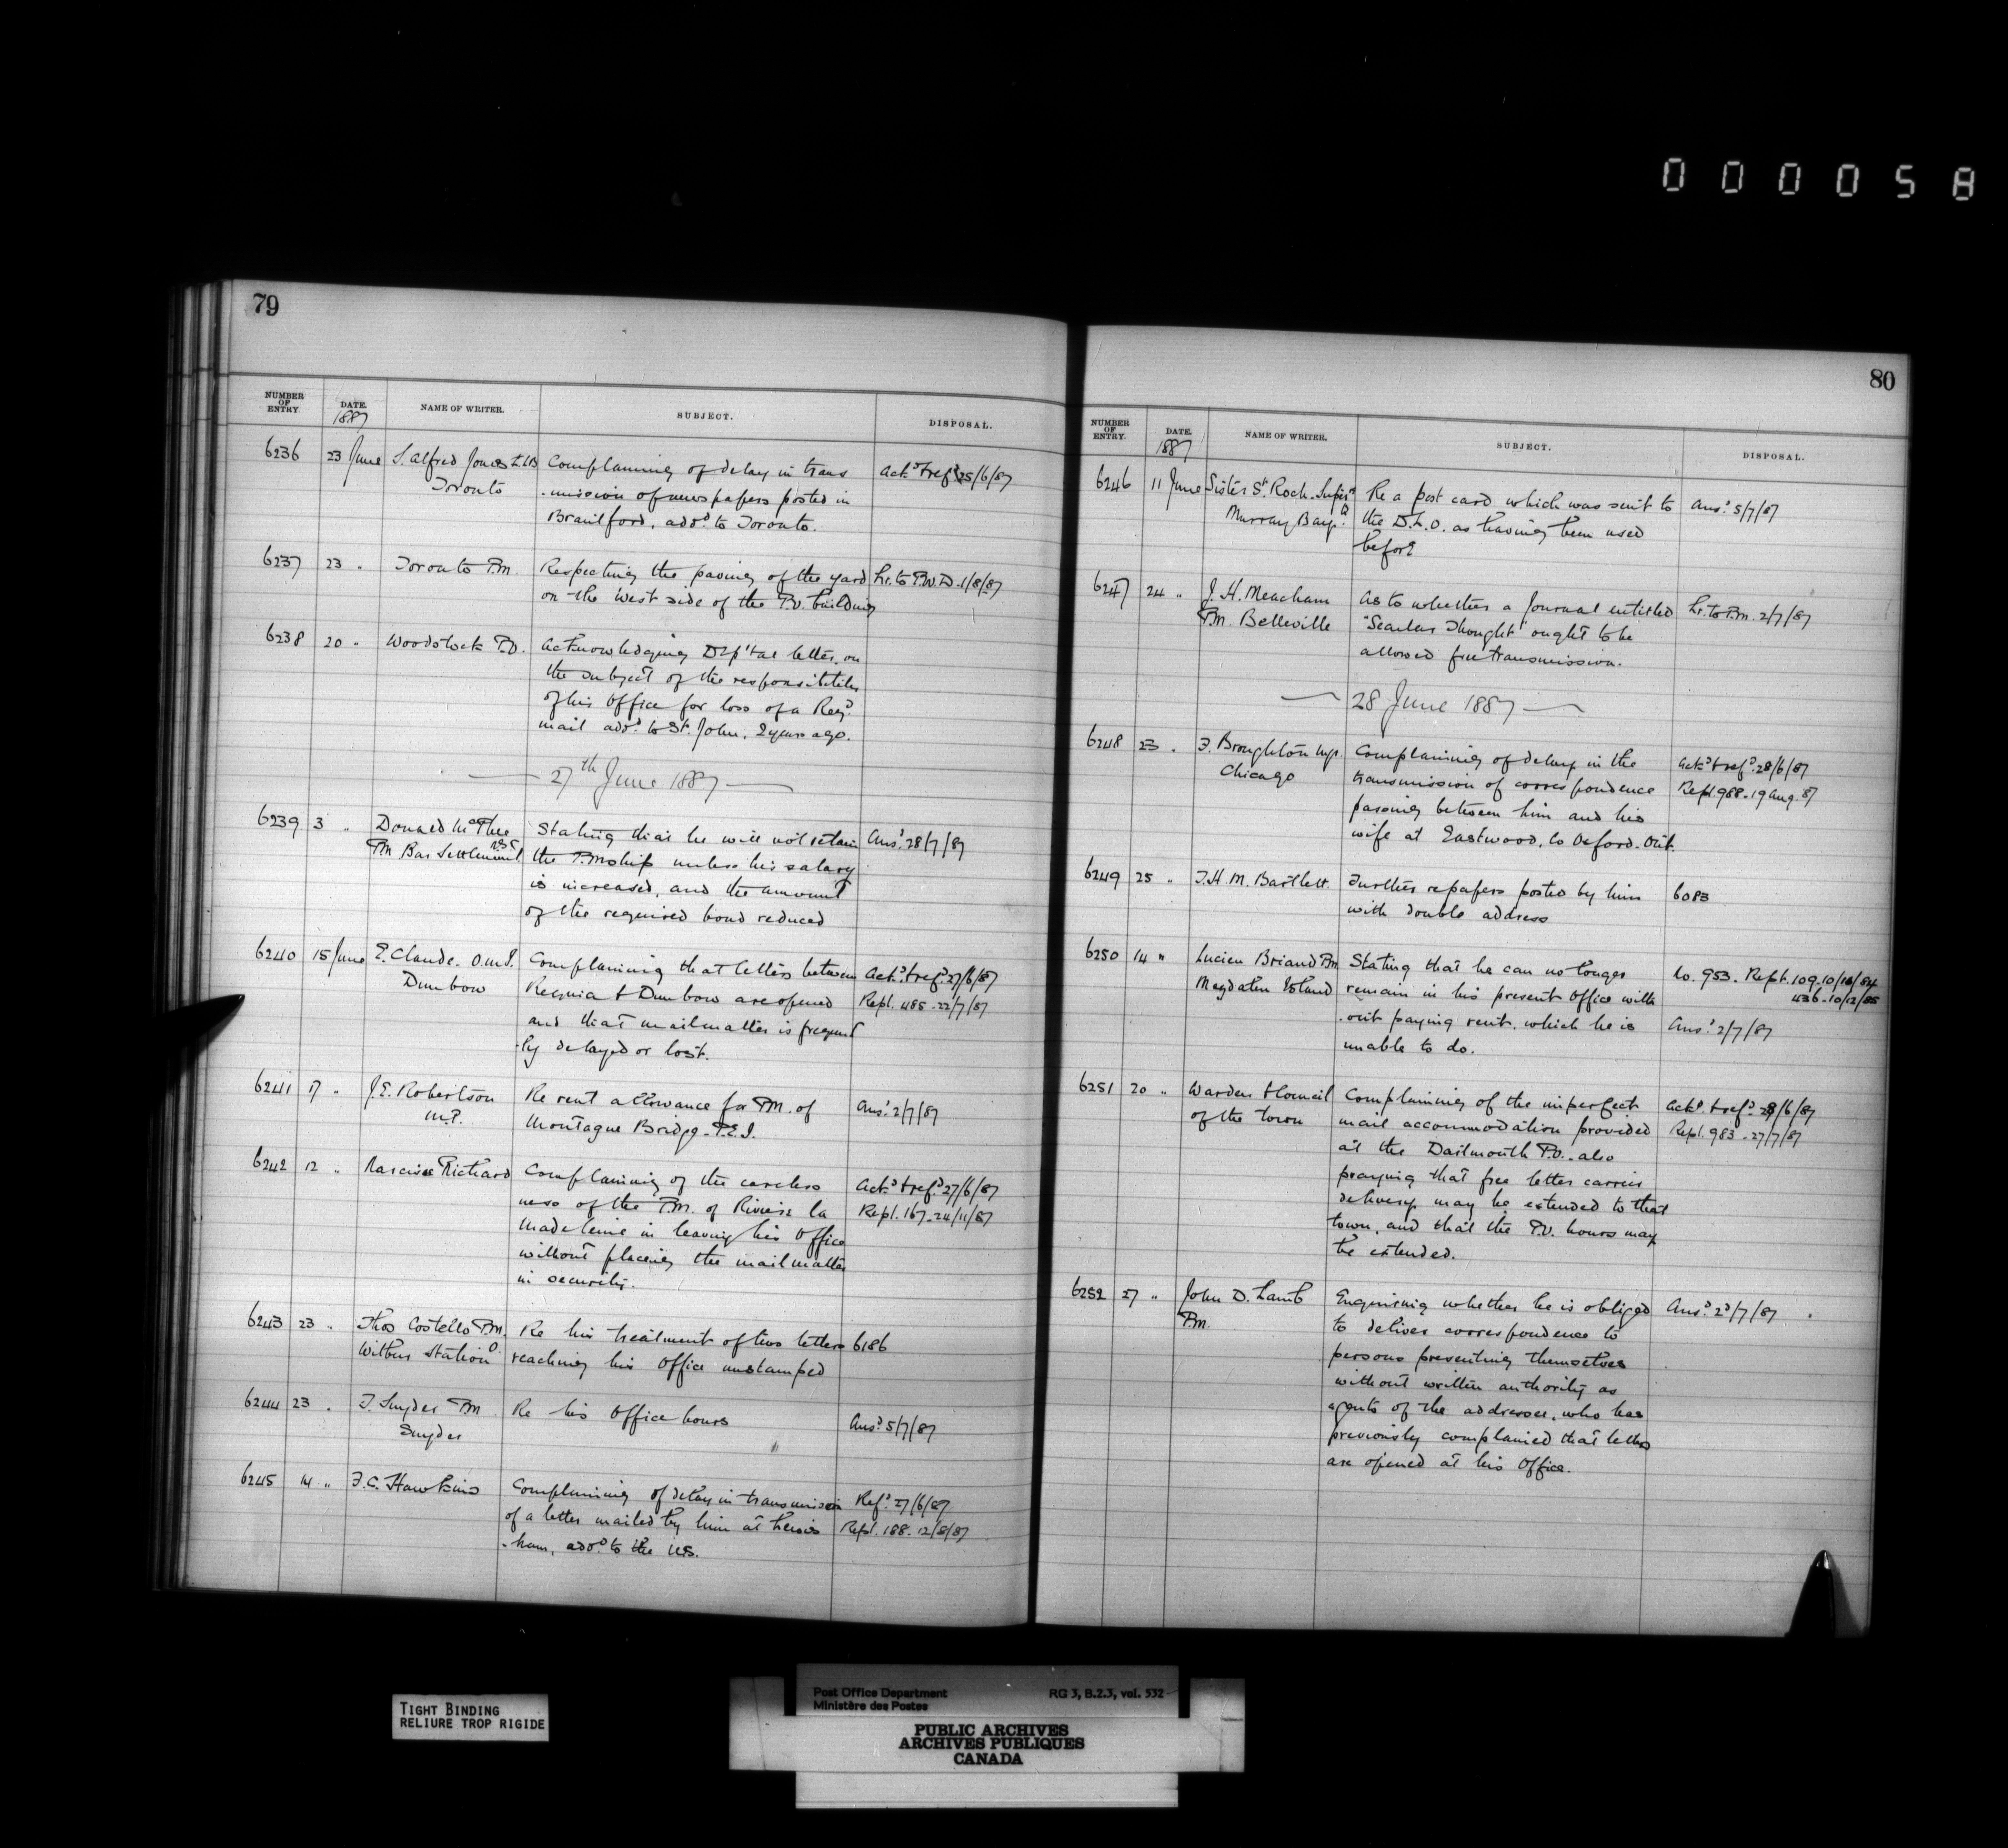 0 0 0 0 5 8
79
NUMBER OF ENTRY. DATE. NAME OF WRITER. SUBJECT. DISPOSAL.
1887
6236 23 June S. Alfred Jones LLB Complaining of delay in trans Ack.d & ref.d 25/6/87
Toronto -mission of newspapers posted in
Brantford, add.d to Toronto.
6237 23 " Toronto P.M. Respecting the paving of the yard Lr. to P.W.D. 1/8/87
on the West side of the P.O. building
6238 20 " Woodstock P.O. Acknowledging Dep'tal letter, on
the subject of the responsibility
of his Office for loss of a Reg.d
mail add.d to St. John, 2 years ago.
— 27th June 1887 —
6239 3 " Donald McPhee Stating that he will not retain Ans.d 28/7/87
PM Bar Settlement N.S. the P.Mship unless his salary
is increased, and the amount
of the required bond reduced
6240 15 June E. Claude. O.M.I. Complaining that letters between Ack.d & ref.d 27/6/87
Dunbow Regina & Dunbow are opened Repl. 485. 22/7/87
and that mail matter is frequent
-ly delayed or lost.
6241 17 " J.E. Robertson Re rent allowance for P.M. of Ans.d 2/7/87
M.P. Montague Bridge. P.E.I.
6242 12 " Narcisse Richard Complaining of the careless Ack.d & ref.d 27/6/87
ness of the P.M. of Riviere la Repl. 167. 24/11/87
Madeleine in leaving his Office
without placing the mail matter
in security.
6243 23 " Thos Costello P.M. Re his treatment of two letters 6186
Wilbur Station O. reaching his Office unstamped
6244 23 " T. Snyder P.M. Re his Office hours Ans.d 5/7/87
Snyder
6245 14 " F.C. Hawkins Complaining of delay in transmission Ref.d 27/6/87
of a letter mailed by him at Lewis Repl. 188. 12/8/87
-ham, add.d to the U.S.
80
NUMBER OF ENTRY. DATE. NAME OF WRITER. SUBJECT. DISPOSAL.
1887
6246 11 June Sister St. Roch. Super.r Re a post card which was sent to Ans.d 5/7/87
Murray Bay. Q. the D.L.O. as having been used
before
6247 24 " J.H. Meacham As to whether a Journal entitled Lr. to P.M. 2/7/87
P.M. Belleville "Secular Thought" ought to be
allowed free transmission.
— 28 June 1887 —
6248 23 " F. Broughton Mgr. Complaining of delay in the Ack.d & ref.d 28/6/87
Chicago transmission of correspondence Repl. 988. 19 Aug. 87
passing between him and his
wife at Eastwood, Co Oxford. Ont.
6249 25 " T.H.M. Bartlett. Further re papers posted by him 6083
with double address
6250 14 " Lucien Briand P.M. Stating that he can no longer Co. 953. Rept. 109. 10/10/84
Magdalen Island remain in his present Office with 436. 10/12/85
-out paying rent, which he is Ans.d 2/7/87
unable to do.
6251 20 " Warden & Council Complaining of the imperfect Ack.d & ref.d 28/6/87
of the town mail accommodation provided Repl. 983. 27/7/87
at the Dartmouth P.O. also
praying that free letter carrier
delivery may be extended to that
town, and that the P.O. hours may
be extended.
6252 27 " John D. Lamb Enquiring whether he is obliged Ans.d 2d/7/87
P.M. to deliver correspondence to
persons presenting themselves
without written authority as
agents of the addressee, who has
previously complained that letters
are opened at his Office.
TIGHT BINDING
RELIURE TROP RIGIDE
Post Office Department RG 3, B.2.3, vol. 532
Ministère des Postes
PUBLIC ARCHIVES
ARCHIVES PUBLIQUES
CANADA